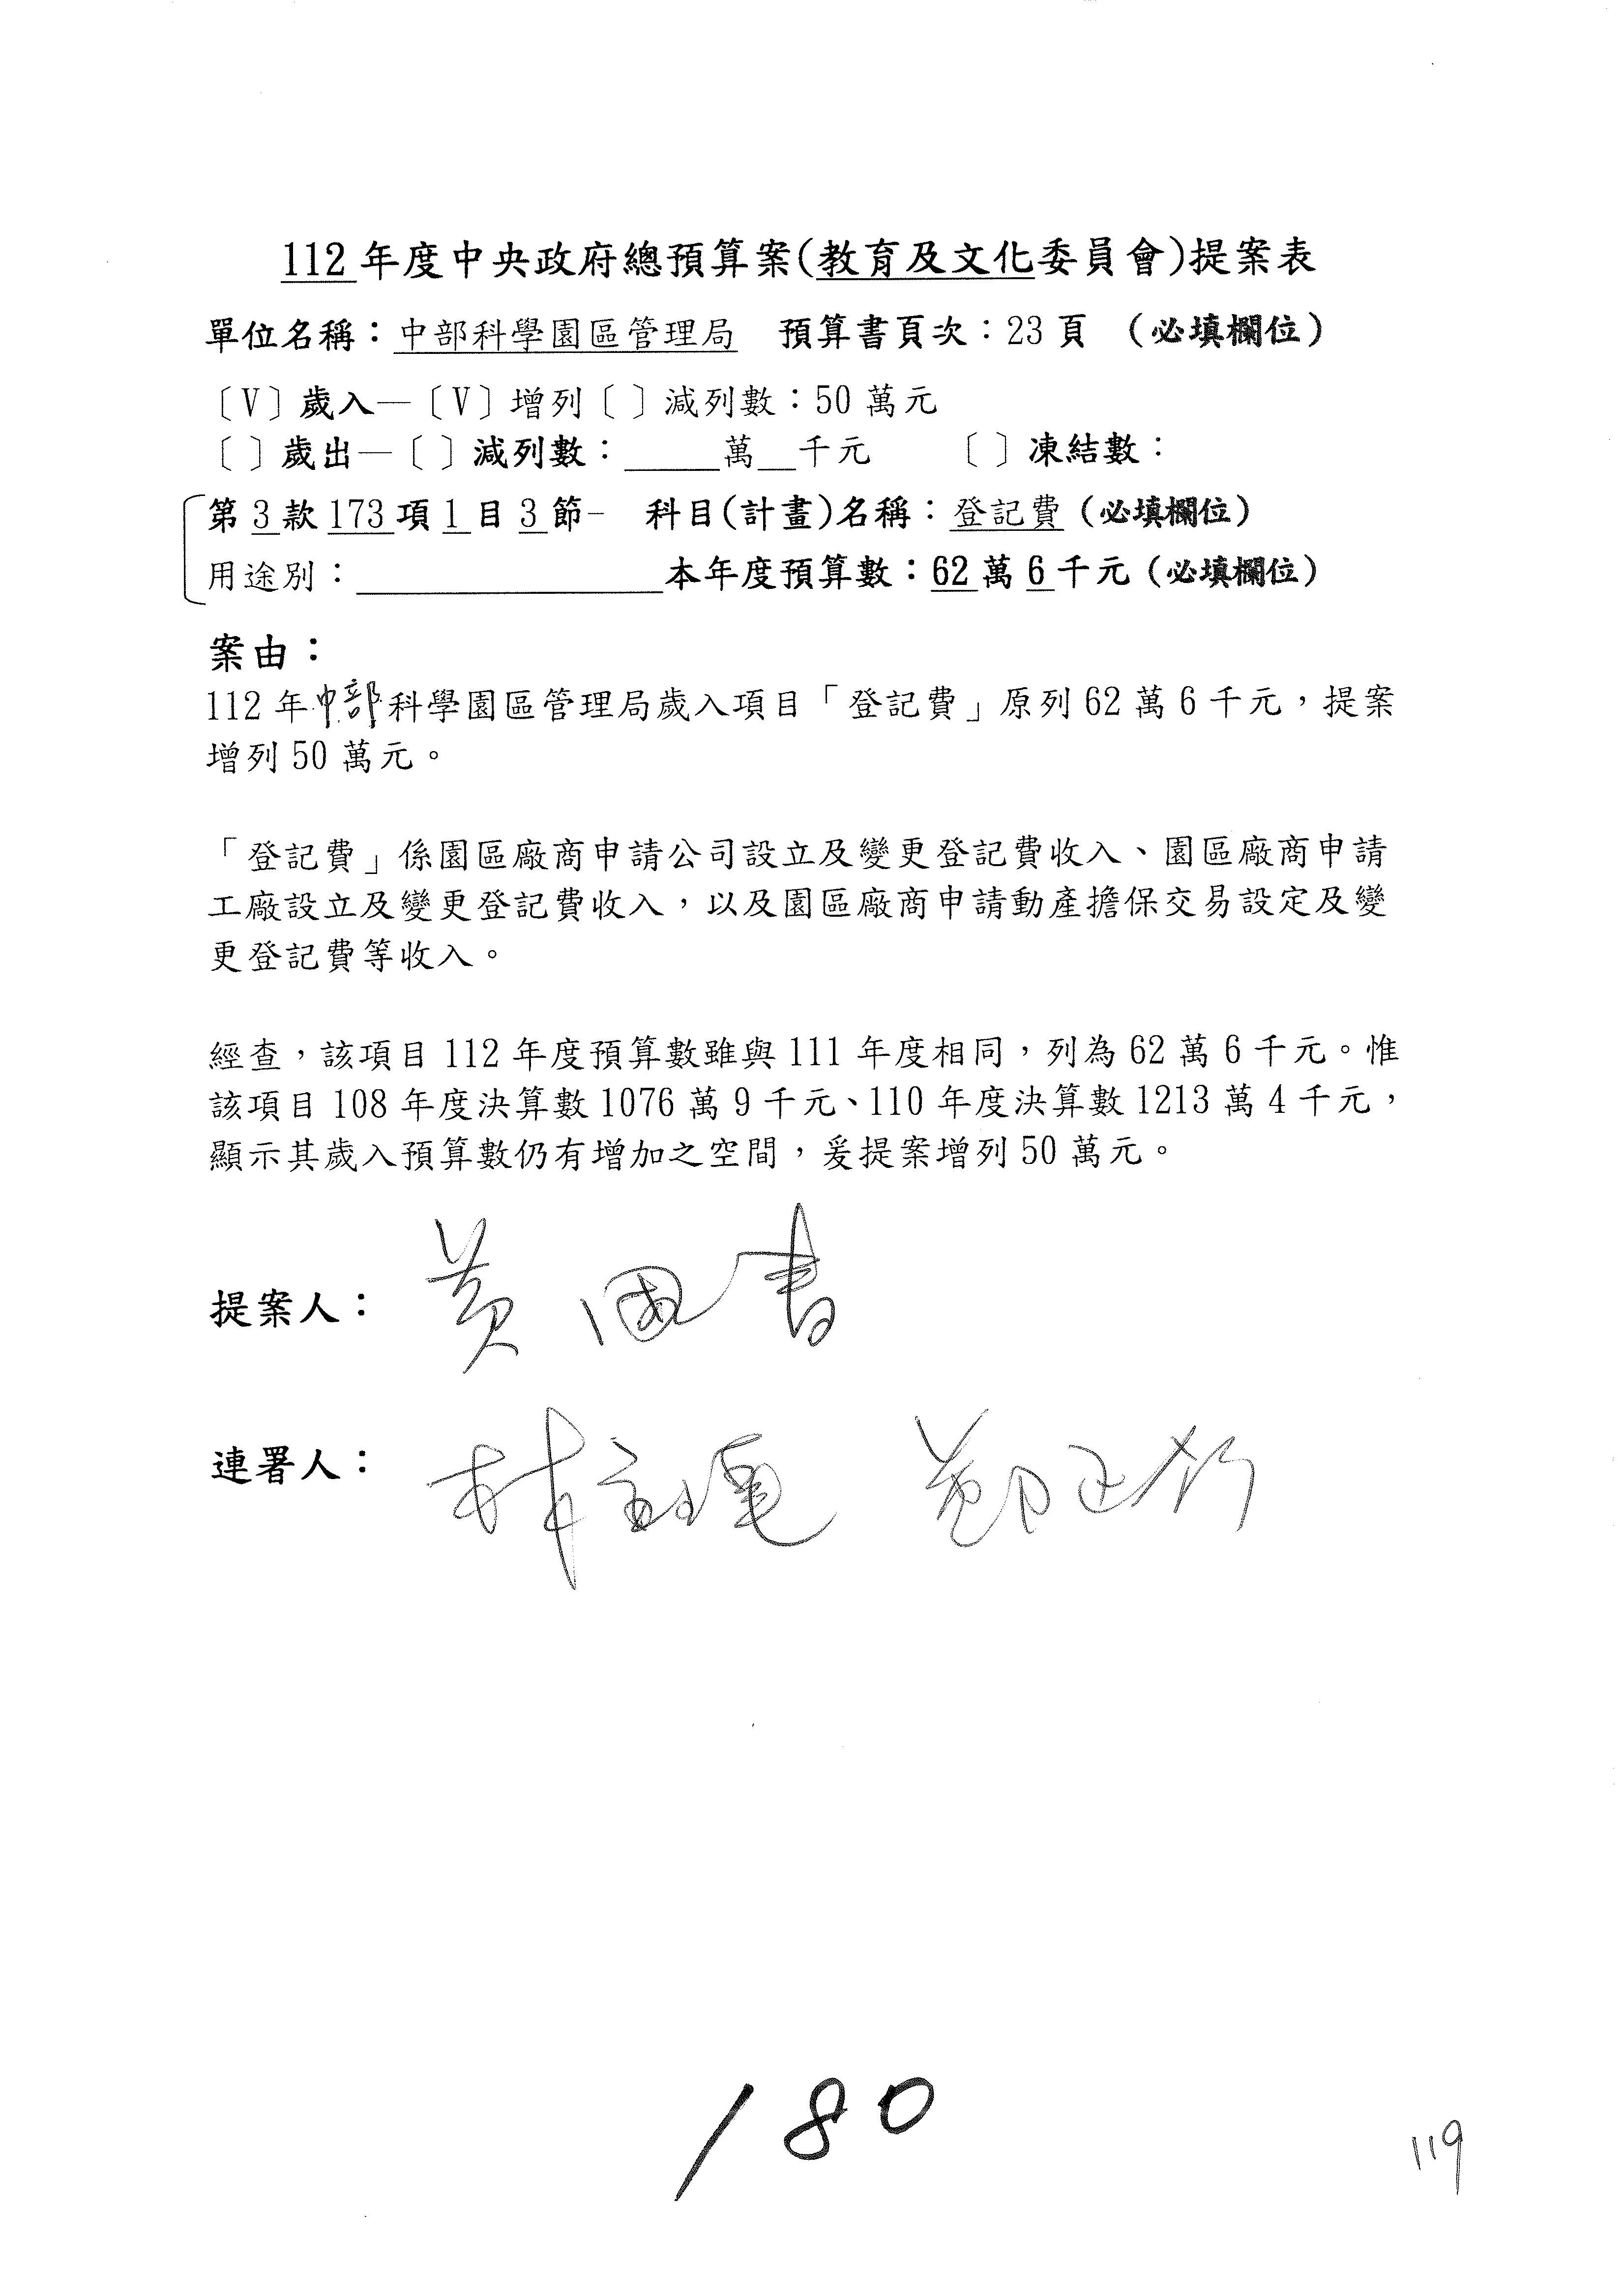 112年度中央政府總預算案(教育及文化委員會)提案表
單位名稱：中部科學園區管理局　預算書頁次：23頁　(必填欄位)
〔V〕歲入—〔V〕增列〔 〕減列數：50萬元
〔 〕歲出—〔 〕減列數：_____萬__千元　〔 〕凍結數：
第3款173項1目3節-　科目(計畫)名稱：登記費(必填欄位)
用途別：________________本年度預算數：62萬6千元(必填欄位)
案由：
112年中部科學園區管理局歲入項目「登記費」原列62萬6千元，提案
增列50萬元。
「登記費」係園區廠商申請公司設立及變更登記費收入、園區廠商申請
工廠設立及變更登記費收入，以及園區廠商申請動產擔保交易設定及變
更登記費等收入。
經查，該項目112年度預算數雖與111年度相同，列為62萬6千元。惟
該項目108年度決算數1076萬9千元、110年度決算數1213萬4千元，
顯示其歲入預算數仍有增加之空間，爰提案增列50萬元。
提案人：黃國書
連署人：林 鄭正鈐
180
119